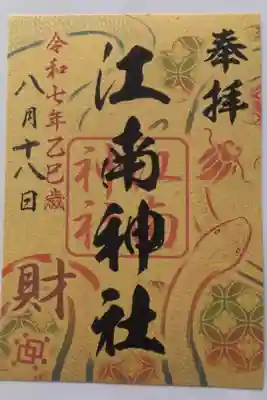 奉拝
江南神社
江南
神社
令和七年乙巳歳
八月十八日
財